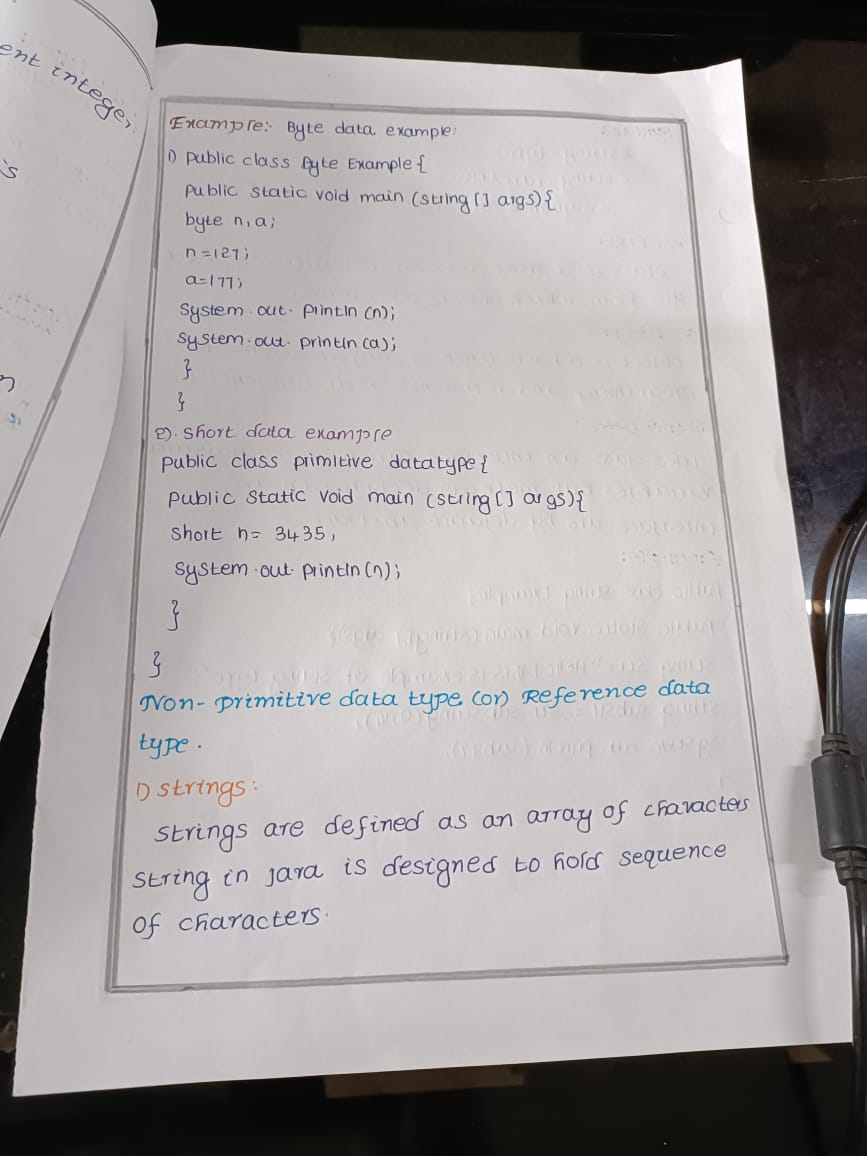 ent integer,
is
Example:- Byte data example:
1) public class Byte Example {
public static void main (string [] args) {
byte n, a;
n=127;
a=177;
System.out.println (n);
System.out.println (a);
}
}
2). short data example
public class primitive datatype {
public static void main (string [] args) {
short n= 3435,
System.out.println (n);
}
}
Non-primitive data type (or) Reference data
type.
1) strings:
strings are defined as an array of characters
string in java is designed to hold sequence
of characters.